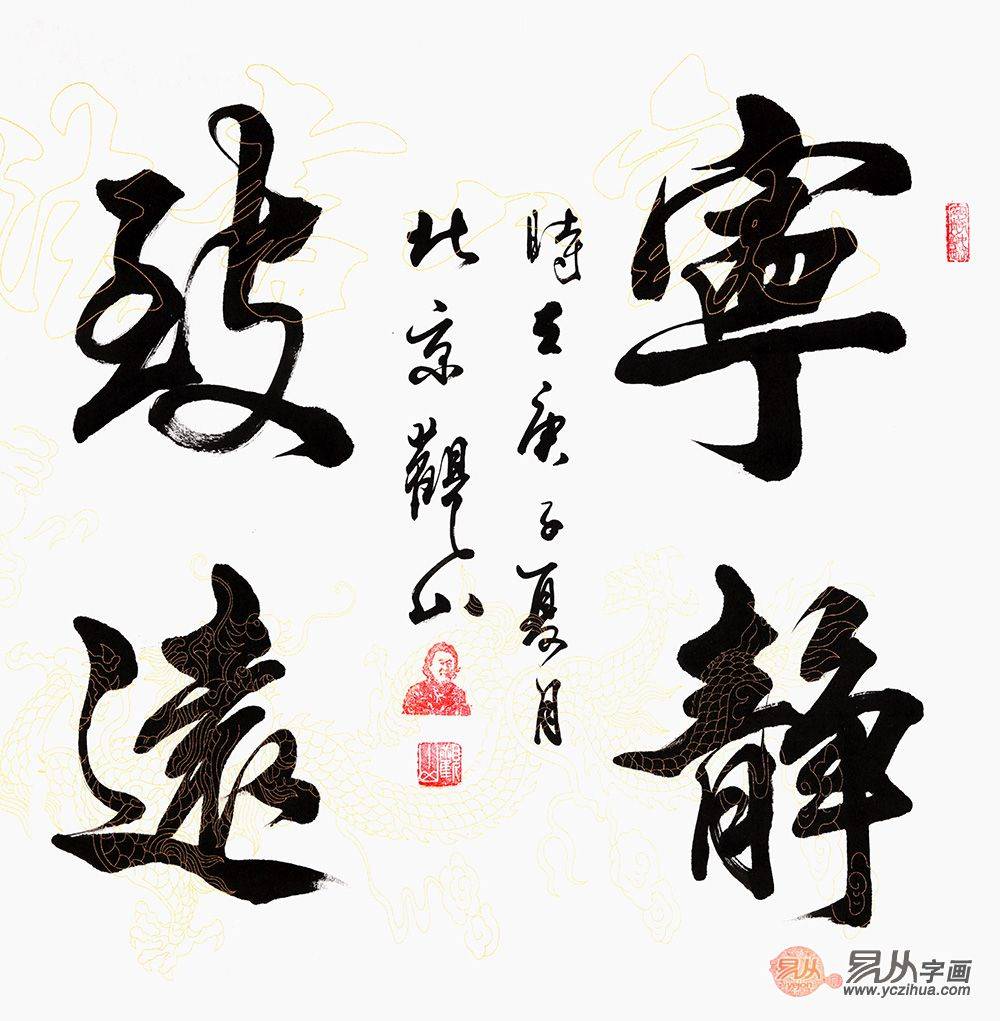 寧靜
致遠
時在庚子夏月
北京觀山
易从
yejon
易从字画
www.yczihua.com